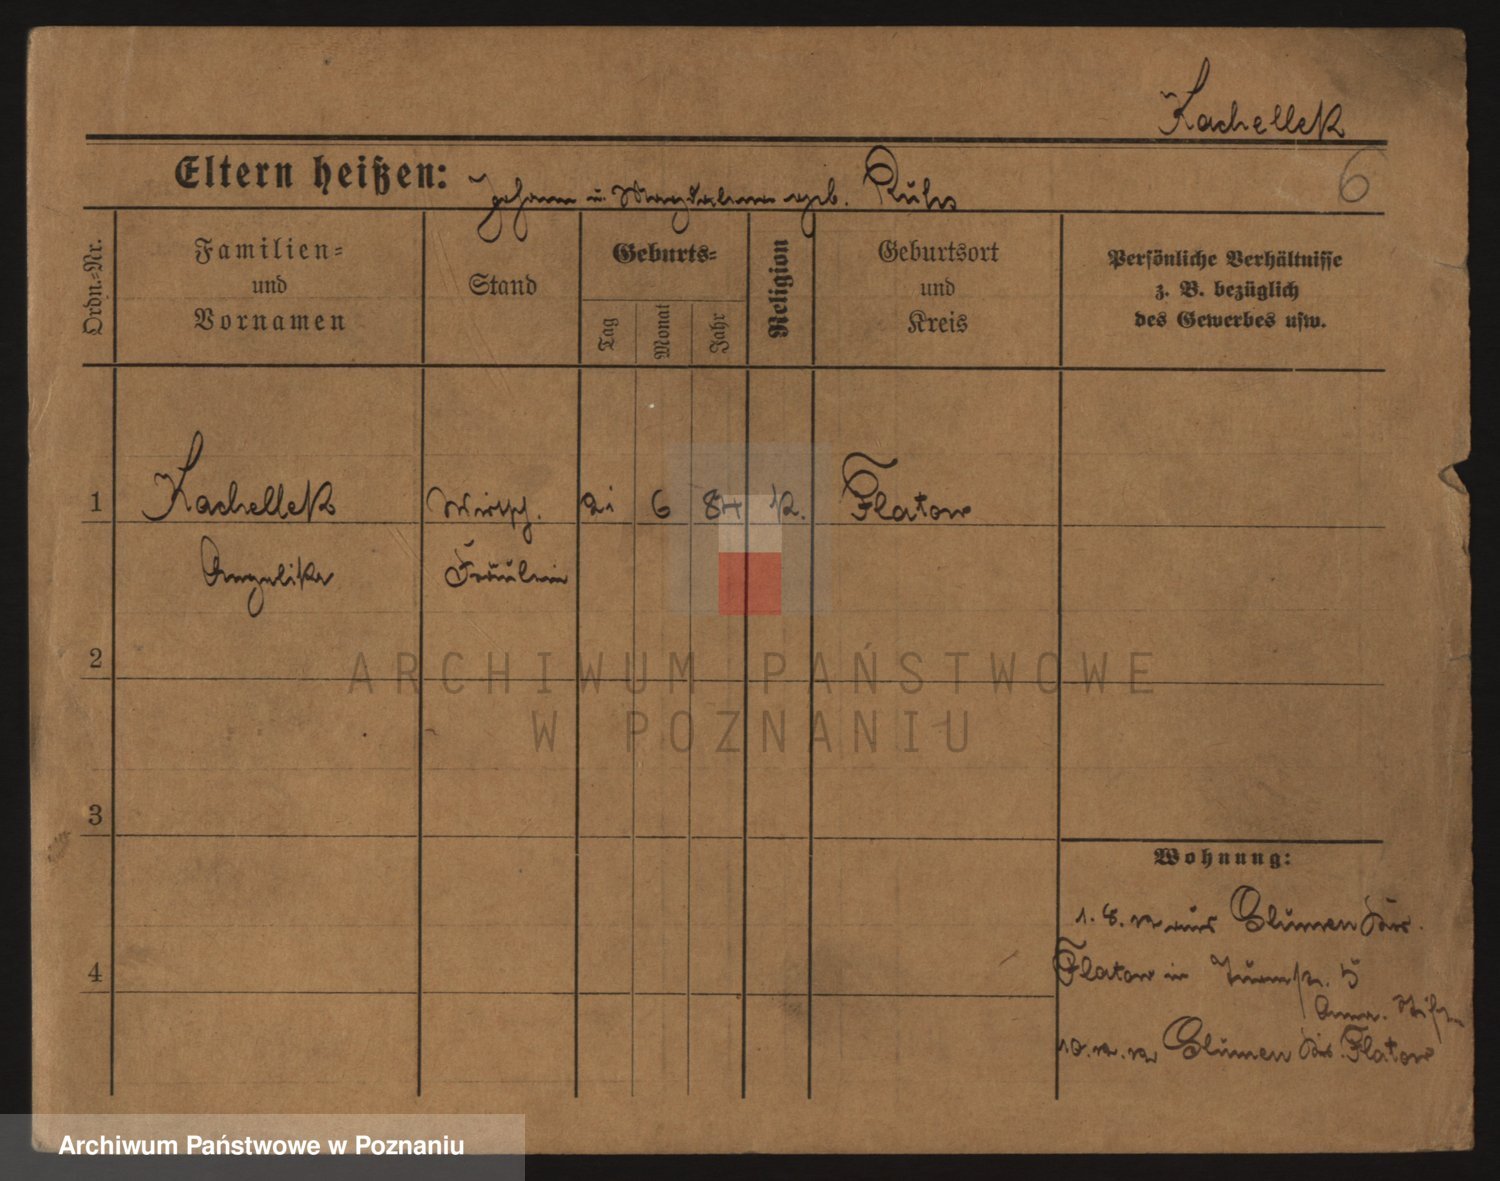 Kachellek
6
Eltern heißen: Johann u. Magdalena geb. Ruhs
Ordn.-Nr.
Familien-
und
Vornamen
Stand
Geburts-
Tag
Monat
Jahr
Religion
Geburtsort
und
Kreis
Persönliche Verhältnisse
z. B. bezüglich
des Gewerbes usw.
1
Kachellek Wirtsch. 21 6 84 k. Flatow
Angelika Fräulein
2
ARCHIWUM PAŃSTWOWE
W POZNANIU
3
Wohnung:
1. 8. aus Blumen
4
Flatow in 5
Anna
10. Blumen Flatow
Archiwum Państwowe w Poznaniu